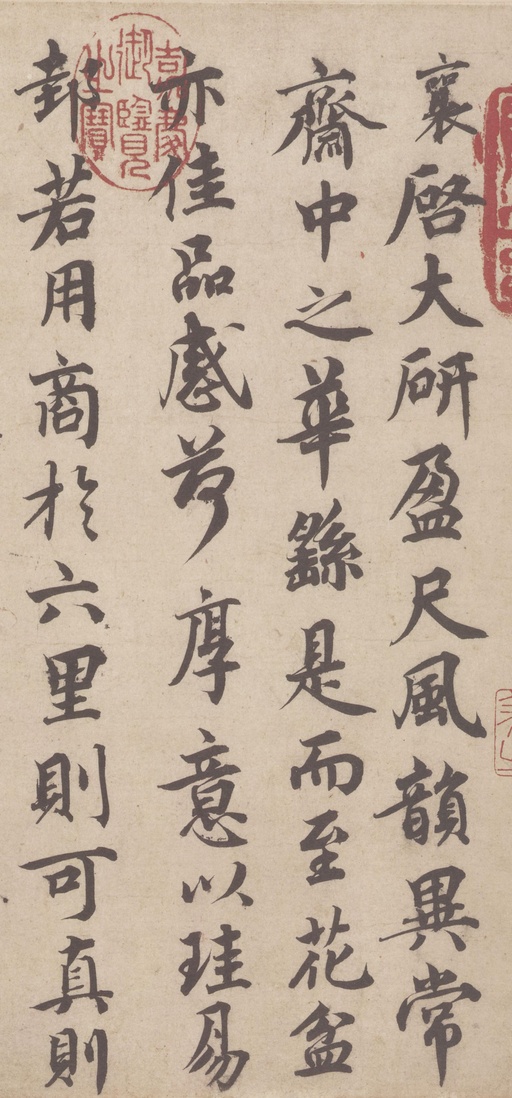 襄啓大研盈尺風韻異常
齋中之華繇是而至花盆
亦佳品感荷厚意以珪易
邽若用商於六里則可真則
嘉慶御覽之寶